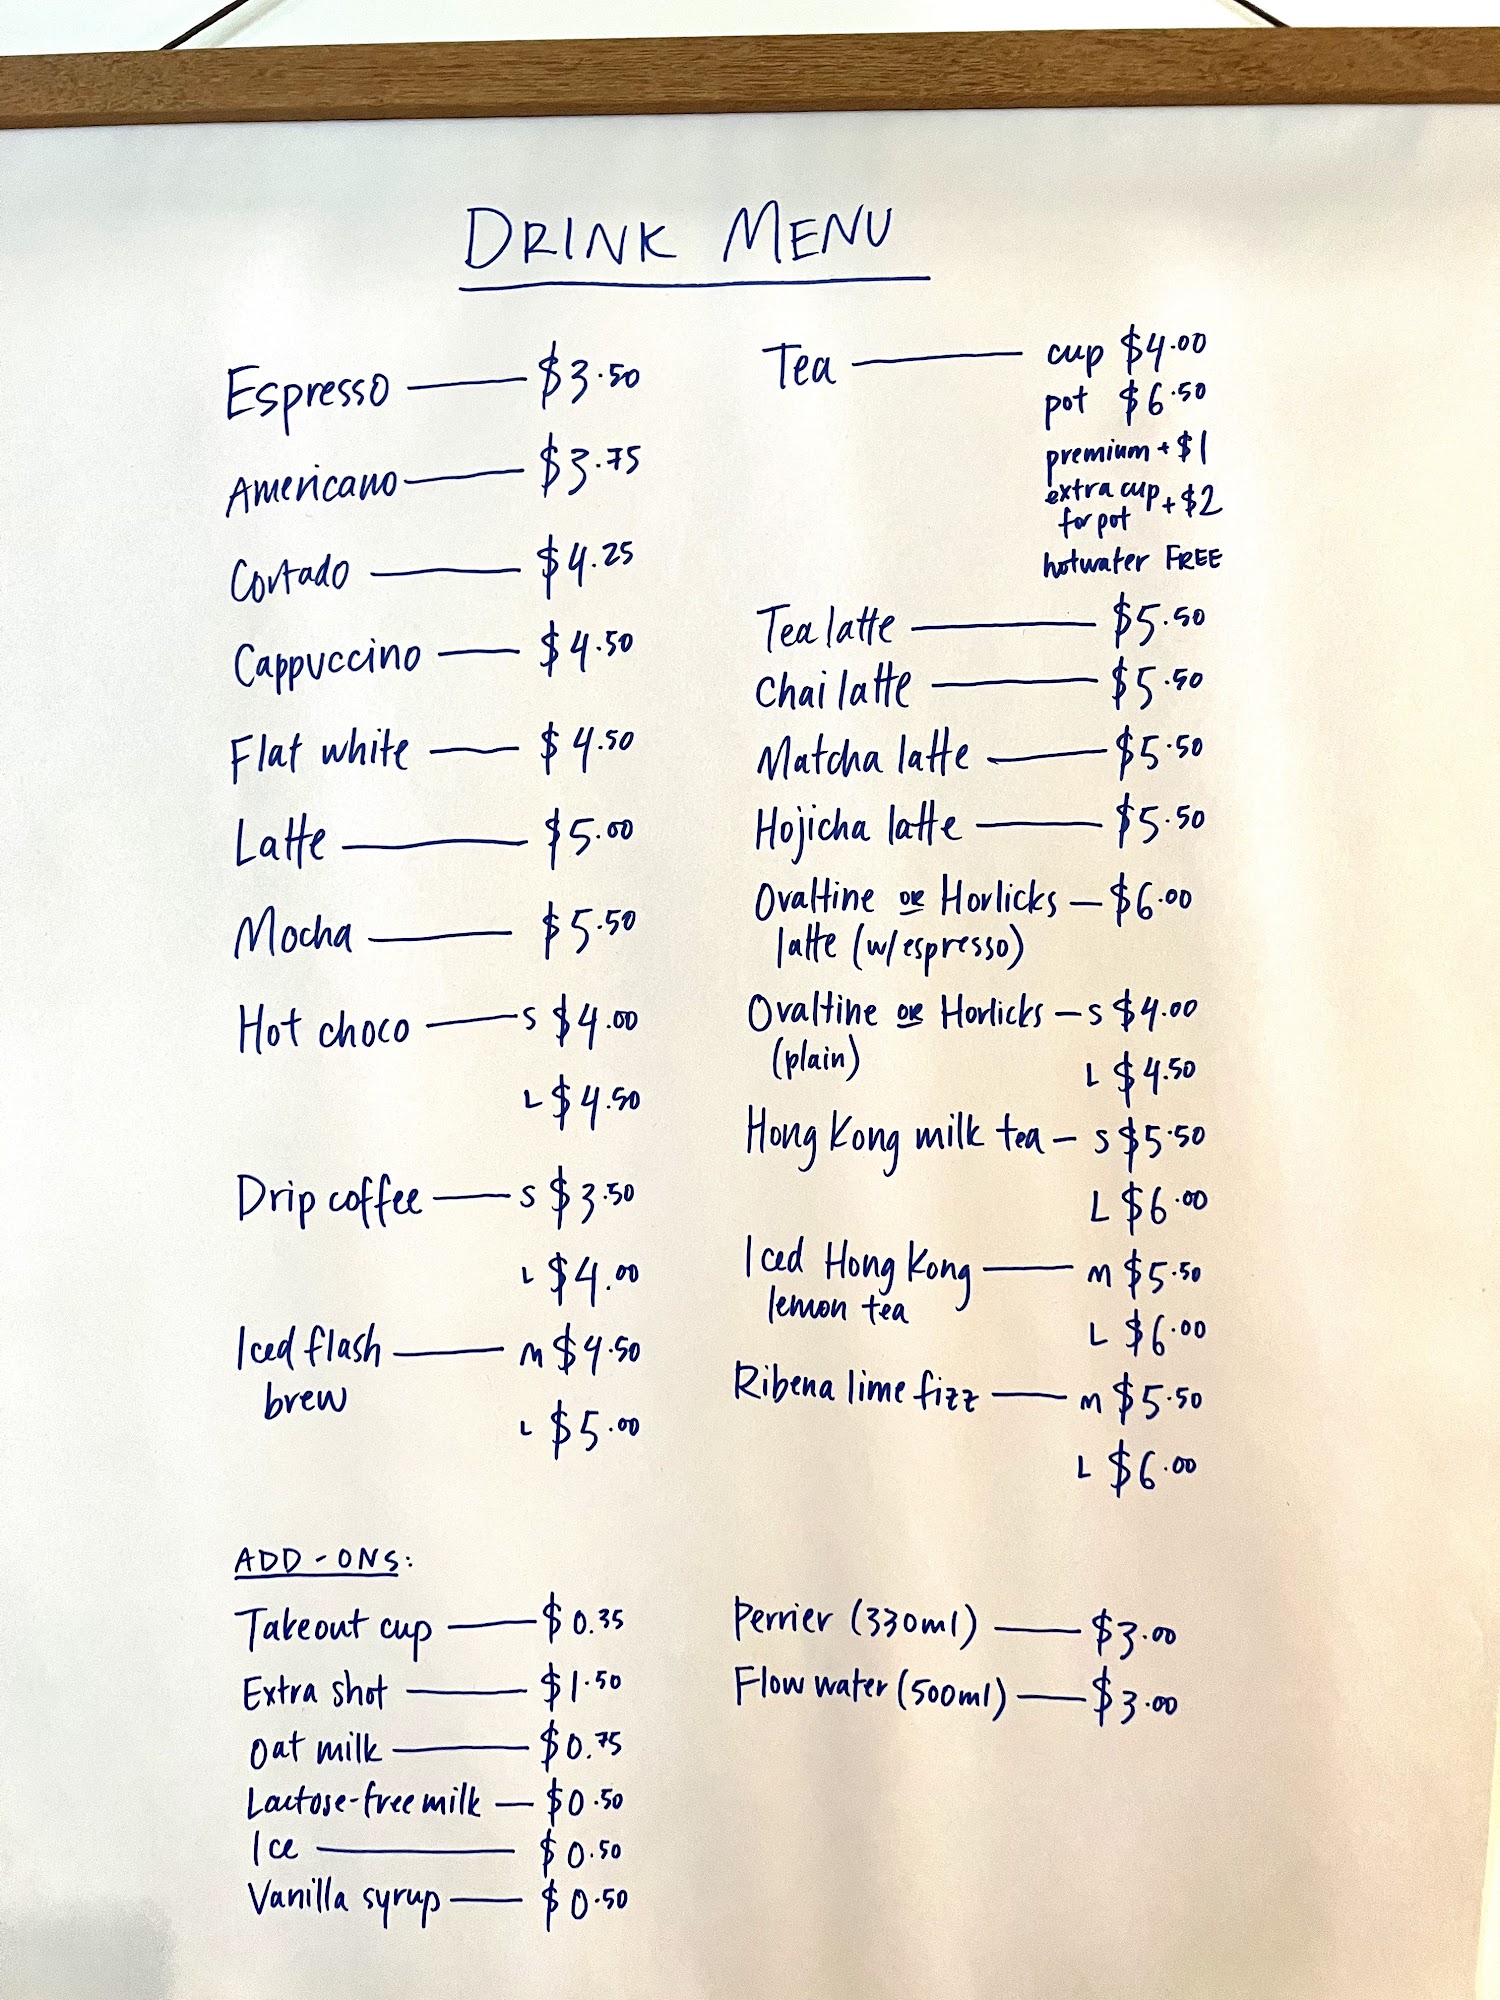 DRINK MENU
Espresso — $3.50
Americano — $3.75
Cortado — $4.25
Cappuccino — $4.50
Flat white — $4.50
Latte — $5.00
Mocha — $5.50
Hot choco — S $4.00
L $4.50
Drip coffee — S $3.50
L $4.00
Iced flash — M $4.50
brew
L $5.00
Tea — cup $4.00
pot $6.50
premium + $1
extra cup + $2
for pot
hotwater FREE
Tea latte — $5.50
Chai latte — $5.50
Matcha latte — $5.50
Hojicha latte — $5.50
Ovaltine OR Horlicks — $6.00
latte (w/espresso)
Ovaltine OR Horlicks — S $4.00
(plain)
L $4.50
Hong Kong milk tea — S $5.50
L $6.00
Iced Hong Kong — M $5.50
lemon tea
L $6.00
Ribena lime fizz — M $5.50
L $6.00
ADD-ONS:
Takeout cup — $0.35
Extra shot — $1.50
Oat milk — $0.75
Lactose-free milk — $0.50
Ice — $0.50
Vanilla syrup — $0.50
Perrier (330ml) — $3.00
Flow water (500ml) — $3.00